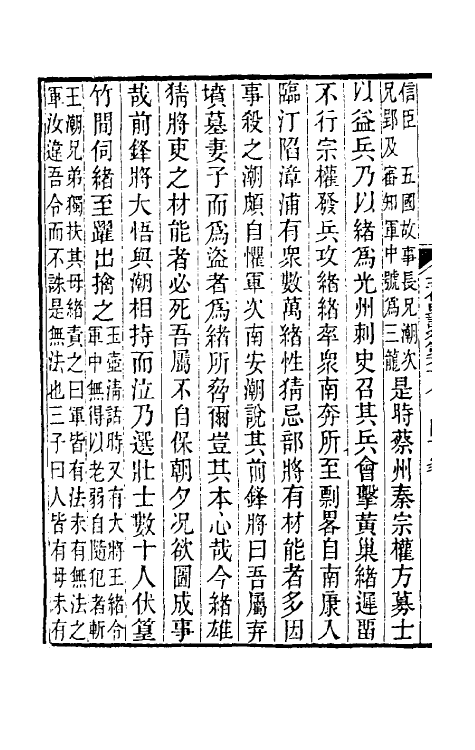 信臣　五國故事長兄潮次
兄郢及　審知軍中號爲三龍
是時蔡州秦宗權方募士
以益兵乃以緒爲光州刺史召其兵會擊黃巢緒遲留
不行宗權發兵攻緒緒率衆南奔所至剽畧自南康入
臨汀陷漳浦有衆數萬緒性猜忌部將有材能者多因
事殺之潮頗自懼軍次南安潮說其前鋒將曰吾屬弃
墳墓妻子而爲盜者爲緒所脅爾豈其本心哉今緒雄
猜將吏之材能者必死吾屬不自保朝夕况欲圖成事
哉前鋒將大悟與潮相持而泣乃選壯士數十人伏篁
竹間伺緒至躍出擒之
王壺清話時又有大將王緒令
軍中無得以老弱自隨犯者斬
王潮兄弟獨扶其母緒責之曰軍皆有法未有無法之
軍汝違吾令而不誅是無法也三子曰人皆有母未有